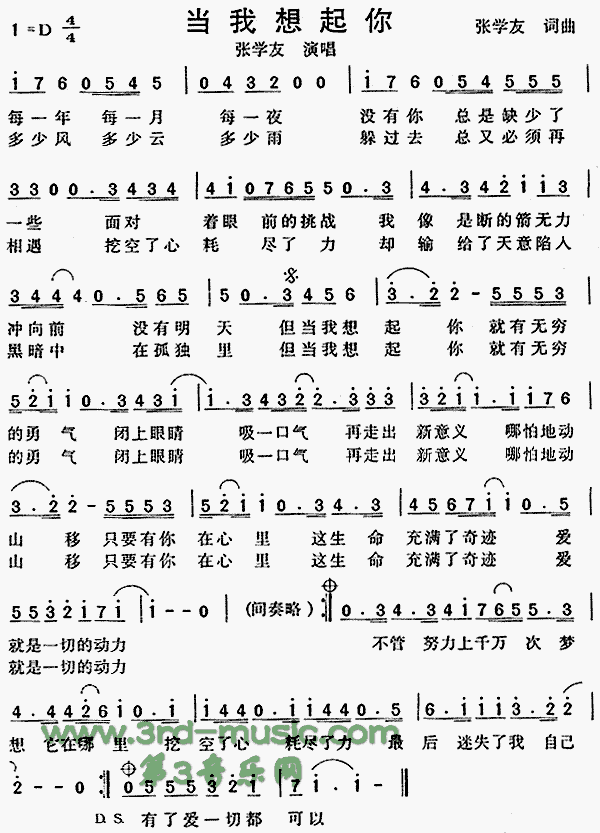 当我想起你
1=D 4/4
张学友 词曲
张学友 演唱
i 7 6 0 5 4 5 | 0 4 3 2 0 0 | i 7 6 0 5 4 5 5 5 |
每一年 每一月 每一夜 没有你 总是缺少了
多少风 多少云 多少雨 躲过去 总又必须再
3 3 0 0 . 3 4 3 4 | 4 i 0 7 6 5 5 0 . 3 | 4 . 3 4 2 i i 3 |
一些 面对 着眼 前的挑战 我 像 是断的箭无力
相遇 挖空了心 耗 尽了 力 却 输 给了天意陷人
3 4 4 4 0 . 5 6 5 | 5 0 . 3 4 5 6 | 3 . 2 2 - 5 5 5 3 |
冲向前 没有明 天 但当我想 起 你 就有无穷
黑暗中 在孤独 里 但当我想 起 你 就有无穷
5 2 i i 0 . 3 4 3 i | i . 3 4 3 2 2 . 3 3 3 | 3 2 i i . i 7 6 |
的勇 气 闭上眼睛 吸一口气 再走出 新意义 哪怕地动
的勇 气 闭上眼睛 吸一口气 再走出 新意义 哪怕地动
3 . 2 2 - 5 5 5 3 | 5 2 i i 0 . 3 4 . 3 | 4 5 6 7 i i 0 . 5 |
山 移 只要有你 在心 里 这生 命 充满了奇迹 爱
山 移 只要有你 在心 里 这生 命 充满了奇迹 爱
5 5 3 2 i 7 i | i - - 0 | (间奏略) :‖ 0 . 3 4 . 3 4 i 7 6 5 5 . 3 |
就是一切的动力 不管 努力上千万 次 梦
就是一切的动力
4 . 4 4 2 6 i 0 . i | i 4 4 0 . i i 4 4 0 . 5 | 6 . i i i 3 . 2 2 |
想 它在哪 里 挖 空了心 耗尽了力 最 后 迷失了我 自己
www.3rd-music.com
第3音乐网
2 - - 0 :‖ 0 5 5 5 3 2 i | 7 i . i - ‖
D.S. 有了爱一切都 可以